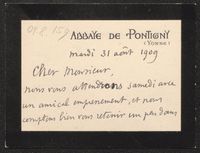 ABBAYE DE PONTIGNY
(YONNE)
mardi 31 août 1909
Cher Monsieur,
nous vous attendrons samedi avec
un amical empressement, et nous
comptons bien vous retenir un peu dans